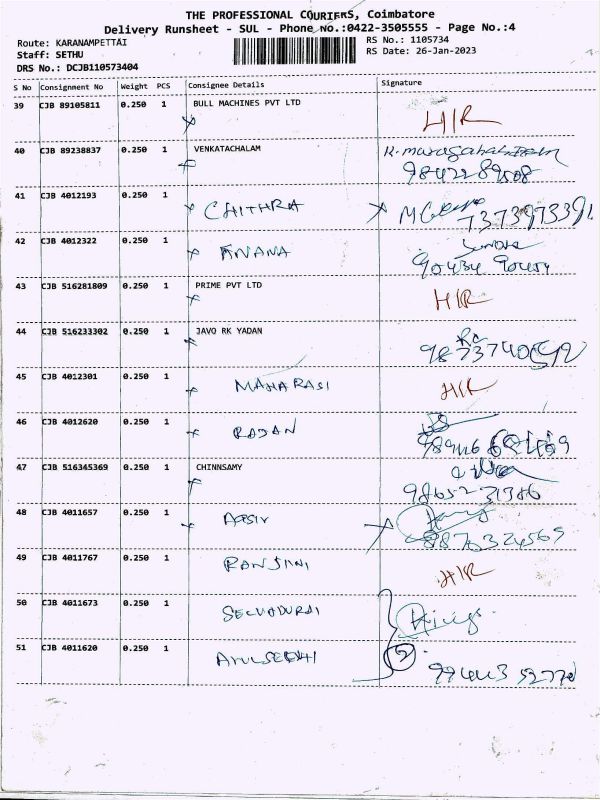 THE PROFESSIONAL COURIERS, Coimbatore
Delivery Runsheet - SUL - Phone No.:0422-3505555 - Page No.:4
Route: KARANAMPETTAI
RS No.: 1105734
Staff: SETHU
RS Date: 26-Jan-2023
DRS No.: DCJB110573404
S No Consignment No Weight PCS Consignee Details Signature
39 CJB 89105811 0.250 1 BULL MACHINES PVT LTD
H/R
40 CJB 89238837 0.250 1 VENKATACHALAM
9842289508
41 CJB 4012193 0.250 1 CHITHRA
7373973391
42 CJB 4012322 0.250 1 ANANA
43 CJB 516281809 0.250 1 PRIME PVT LTD
H/R
44 CJB 516233302 0.250 1 JAVO RK YADAN
45 CJB 4012301 0.250 1 MAHARASI H/R
46 CJB 4012620 0.250 1 RAJAN
47 CJB 516345369 0.250 1 CHINNSAMY
9865231386
48 CJB 4011657 0.250 1
8870324569
49 CJB 4011767 0.250 1 RANJINI H/R
50 CJB 4011673 0.250 1 SELVADURAI
51 CJB 4011620 0.250 1 2